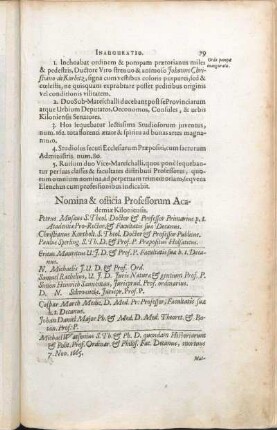 INAUGURATIO. 79
1. Inchoabat ordinem & pompam prætorianus miles
& pedestris, Ductore Viro strenuo & animoso Johanne Chri-
stiano de Kurbitz, signa cum vestibus coloris purpurei, sed &
exteris, ne quisquam exprobrare posset pedibus originis
vel conditionis vilitatem.
2. Duo Sub-Mareschalli ducebant post se Provinciarum
atque Urbium Deputatos, Oeconomum, Consules, & urbis
Kiloniensis Senatores.
3. Hos sequebatur lectissima Studiosorum juventus,
num. 162. tota florens ætate & spirans ad bonas artes magna-
num.
4. Studiosos secuti Ecclesiarum Præpositi, cum sacrorum
Administris, num. 60.
5. Rursum duo Vice-Mareschalli, quos ponè sequebantur
per suas classes & facultates distributi Professores, quo-
rum omnium nomina ad perpetuam
Elenchus cum professionibus indicabit.
Nomina & officia Professorum Aca-
demiæ Kiloniensis.
Petrus Musæus S. Theol. Doctor & Professor Primarius p. t.
Academiæ Pro-Rector, & Facultatis suæ Decanus.
Christianus Kortholt. S. Theol. Doctor & Professor Publicus.
Paulus Sperling. S. Th. D. & Prof. P. Præpositus Holsatiæ.
Ericus Mauritius U. J. D. & Prof. P. Facultatis suæ h. t. Deca-
nus.
N. Michaelis J. U. D. & Prof. Ord.
Samuel Rachelius, U. J. D. Juris Naturæ & gentium Prof. P.
Simon Henricus Sannemann, Jurisprud. Prof. ordinarius.
D. N. Schrœuck, Jurispr. Prof. P.
Caspar March Medic. D. Med. Pr. Professor, Facultatis suæ
h. t. Decanus.
Johan Daniel Major Ph. & Med. D. Med. Theoret. & Bo-
tan. Prof. P.
Michael Watsonius S. Th. & Ph. D. quondam Historiarum
& Polit. Prof. Ordinar. & Philos. Fac. Decanus, mortuus
7. Nov. 1665.